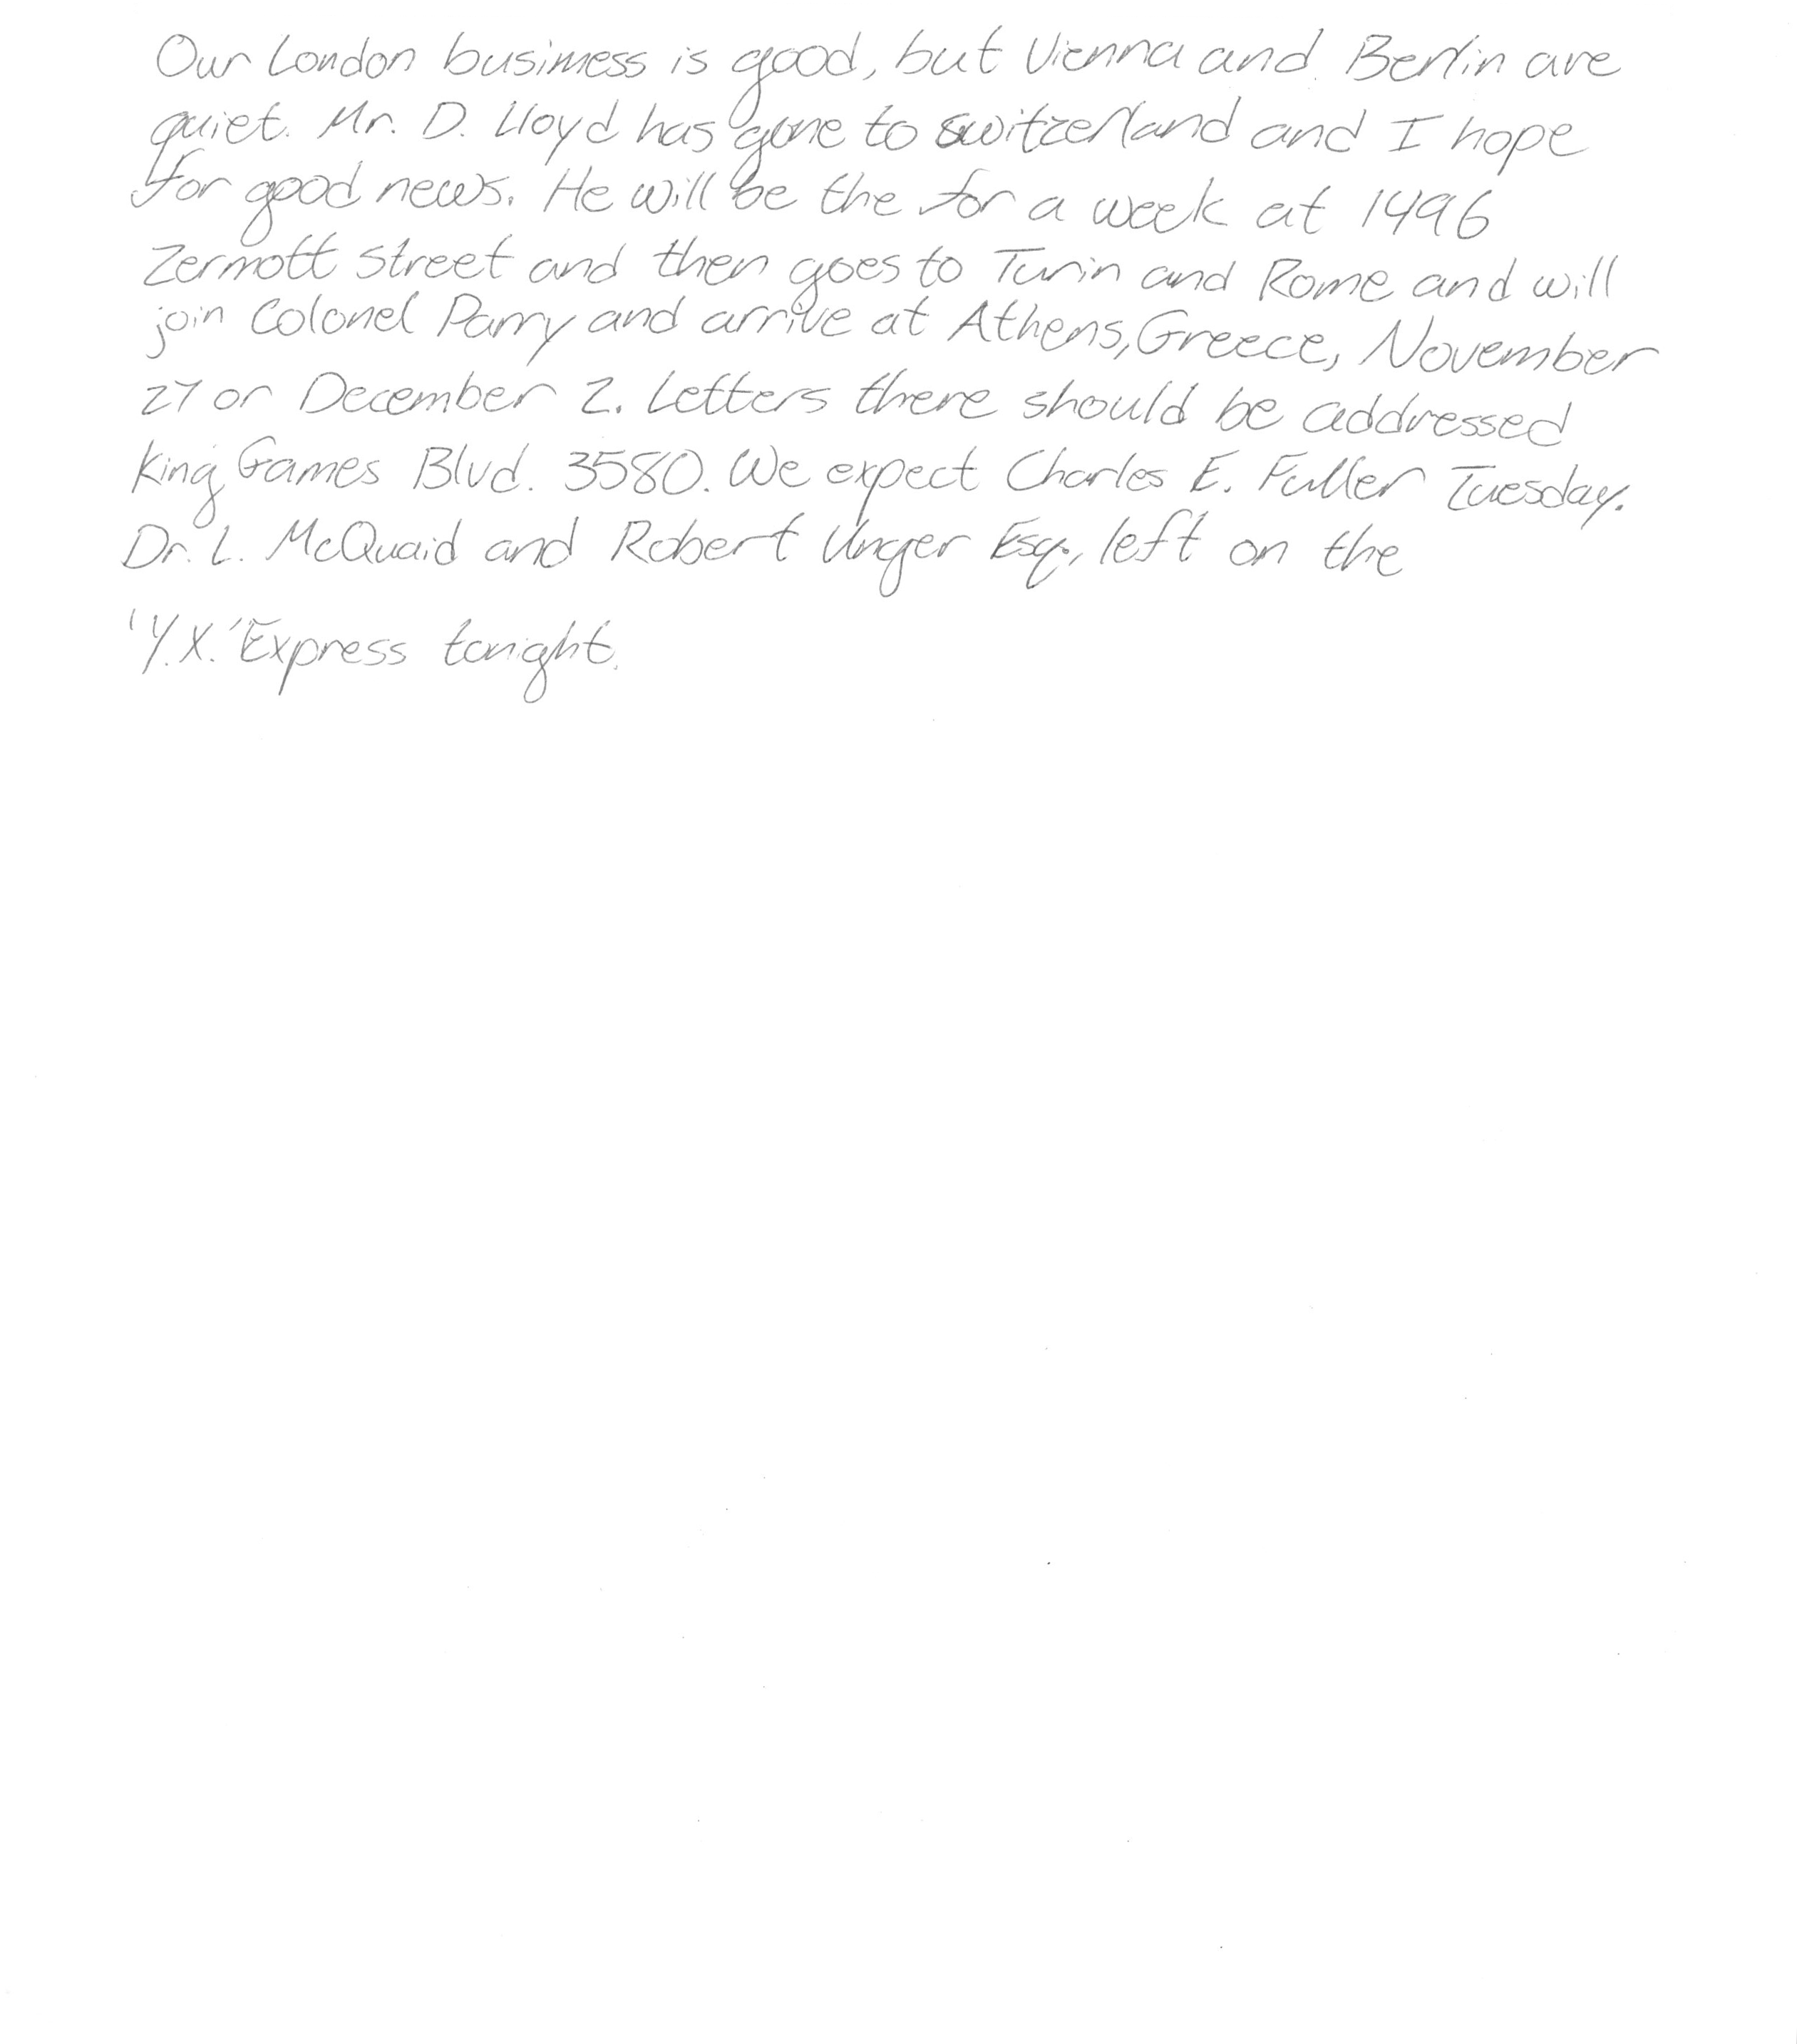 Our London business is good, but Vienna and Berlin are
quiet. Mr. D. Lloyd has gone to Switzerland and I hope
for good news. He will be the for a week at 1496
Zermott Street and then goes to Turin and Rome and will
join Colonel Parry and arrive at Athens, Greece, November
27 or December 2. Letters there should be addressed
King Games Blvd. 3580. We expect Charles E. Fuller Tuesday.
Dr. L. McQuaid and Robert Unger Esq., left on the
'Y.X.' Express tonight.